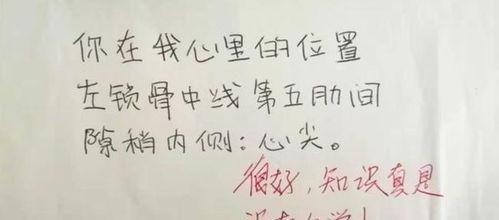 你在我心里的位置
左锁骨中线第五肋间
隙稍内侧:心尖。
很好,知识真是